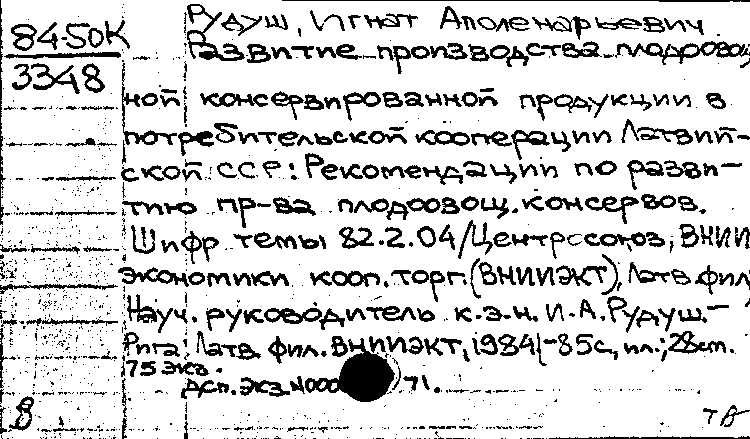 84-50К
3348
Рудуш, Игнат Аполенарьевич.
Развитие производства плодоовощ
ной консервированной продукции в
потребительской кооперации Латвий-
ской ССР: Рекомендации по разви-
тию пр-ва плодоовощ. консервов.
Шифр темы 82.2.04/Центросоюз, ВНИИ
экономики кооп. торг. (ВНИИЭКТ), Латв. фил.
Науч. руководитель к.э.н. И.А. Рудуш.-
Рига: Латв. фил. ВНИИЭКТ, 1984.-85с, ил.; 28см.
75 экз.
Дсп. Экз. N000 71.
8